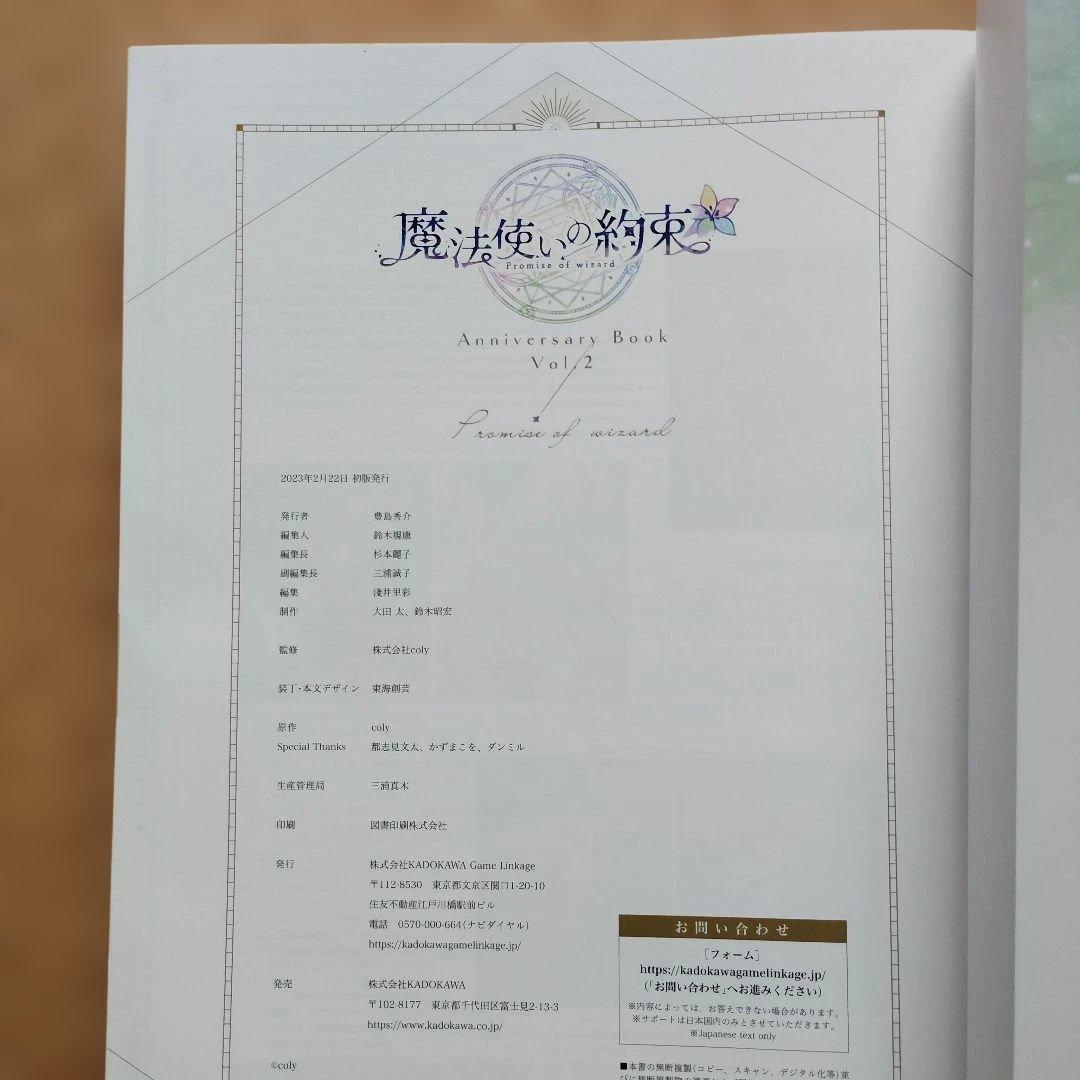 魔法使いの約束
Promise of wizard
Anniversary Book
Vol.2
Promise of wizard
2023年2月22日 初版発行
発行者 豊島秀介
編集人 鈴木規康
編集長 杉本麗子
副編集長 三浦誠子
編集 淺井里彩
制作 大田 太、鈴木昭宏
監修 株式会社coly
装丁・本文デザイン 東海創芸
原作 coly
Special Thanks 都志見文太、かずまこを、ダンミル
生産管理局 三浦真木
印刷 図書印刷株式会社
発行 株式会社KADOKAWA Game Linkage
〒112-8530 東京都文京区関口1-20-10
住友不動産江戸川橋駅前ビル
電話 0570-000-664(ナビダイヤル)
https://kadokawagamelinkage.jp/
発売 株式会社KADOKAWA
〒102-8177 東京都千代田区富士見2-13-3
https://www.kadokawa.co.jp/
©coly
お問い合わせ
[フォーム]
https://kadokawagamelinkage.jp/
(「お問い合わせ」へお進みください)
※内容によっては、お答えできない場合があります。
※サポートは日本国内のみとさせていただきます。
※Japanese text only
■本書の無断複製(コピー、スキャン、デジタル化等)並